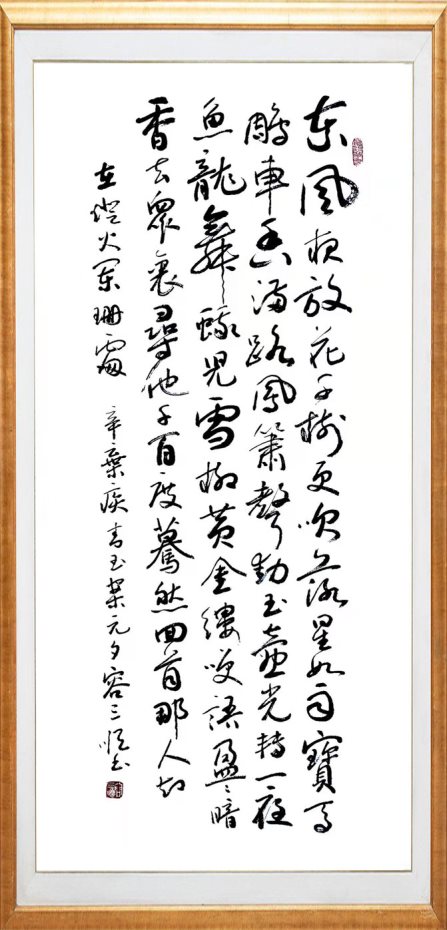 东风夜放花千树更吹落星如雨寶马
雕車香满路凤箫聲動玉壶光转一夜
魚龍舞蛾児雪柳黄金缕笑語盈〻暗
香去眾裏尋他千百度驀然回首那人却
在燈火阑珊處 辛棄疾青玉案元夕容三恒书